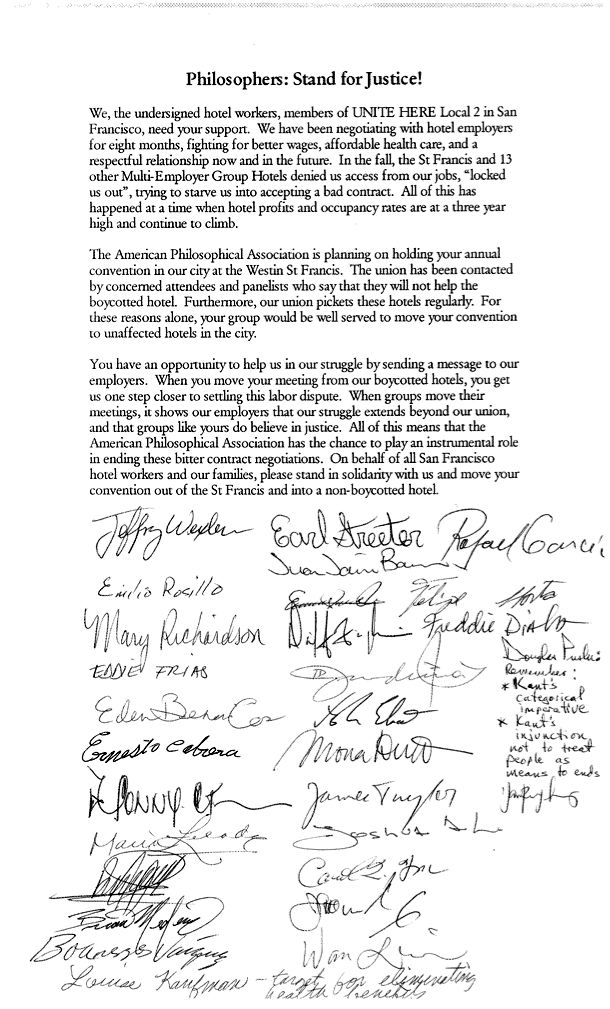 Philosophers: Stand for Justice!
We, the undersigned hotel workers, members of UNITE HERE Local 2 in San
Francisco, need your support. We have been negotiating with hotel employers
for eight months, fighting for better wages, affordable health care, and a
respectful relationship now and in the future. In the fall, the St Francis and 13
other Multi-Employer Group Hotels denied us access from our jobs, “locked
us out”, trying to starve us into accepting a bad contract. All of this has
happened at a time when hotel profits and occupancy rates are at a three year
high and continue to climb.
The American Philosophical Association is planning on holding your annual
convention in our city at the Westin St Francis. The union has been contacted
by concerned attendees and panelists who say that they will not help the
boycotted hotel. Furthermore, our union pickets these hotels regularly. For
these reasons alone, your group would be well served to move your convention
to unaffected hotels in the city.
You have an opportunity to help us in our struggle by sending a message to our
employers. When you move your meeting from our boycotted hotels, you get
us one step closer to settling this labor dispute. When groups move their
meetings, it shows our employers that our struggle extends beyond our union,
and that groups like yours do believe in justice. All of this means that the
American Philosophical Association has the chance to play an instrumental role
in ending these bitter contract negotiations. On behalf of all San Francisco
hotel workers and our families, please stand in solidarity with us and move your
convention out of the St Francis and into a non-boycotted hotel.
Jeffry Wexler Earl Streeter Rafael Garcia
Juan Jaim
Emilio Rosillo Felipe
Mary Richardson Freddie Diaho
EDDIE FRIAS Douglas
Remember:
* Kant's
categorical
imperative
* Kant's
injunction
not to treat
people as
means to ends
Eden
Ernesto Cabrera Mona
James Taylor
Maria Joshua
Carol
Brian
Vasquez Wan
Louise Kaufman - target for eliminating
health benefits